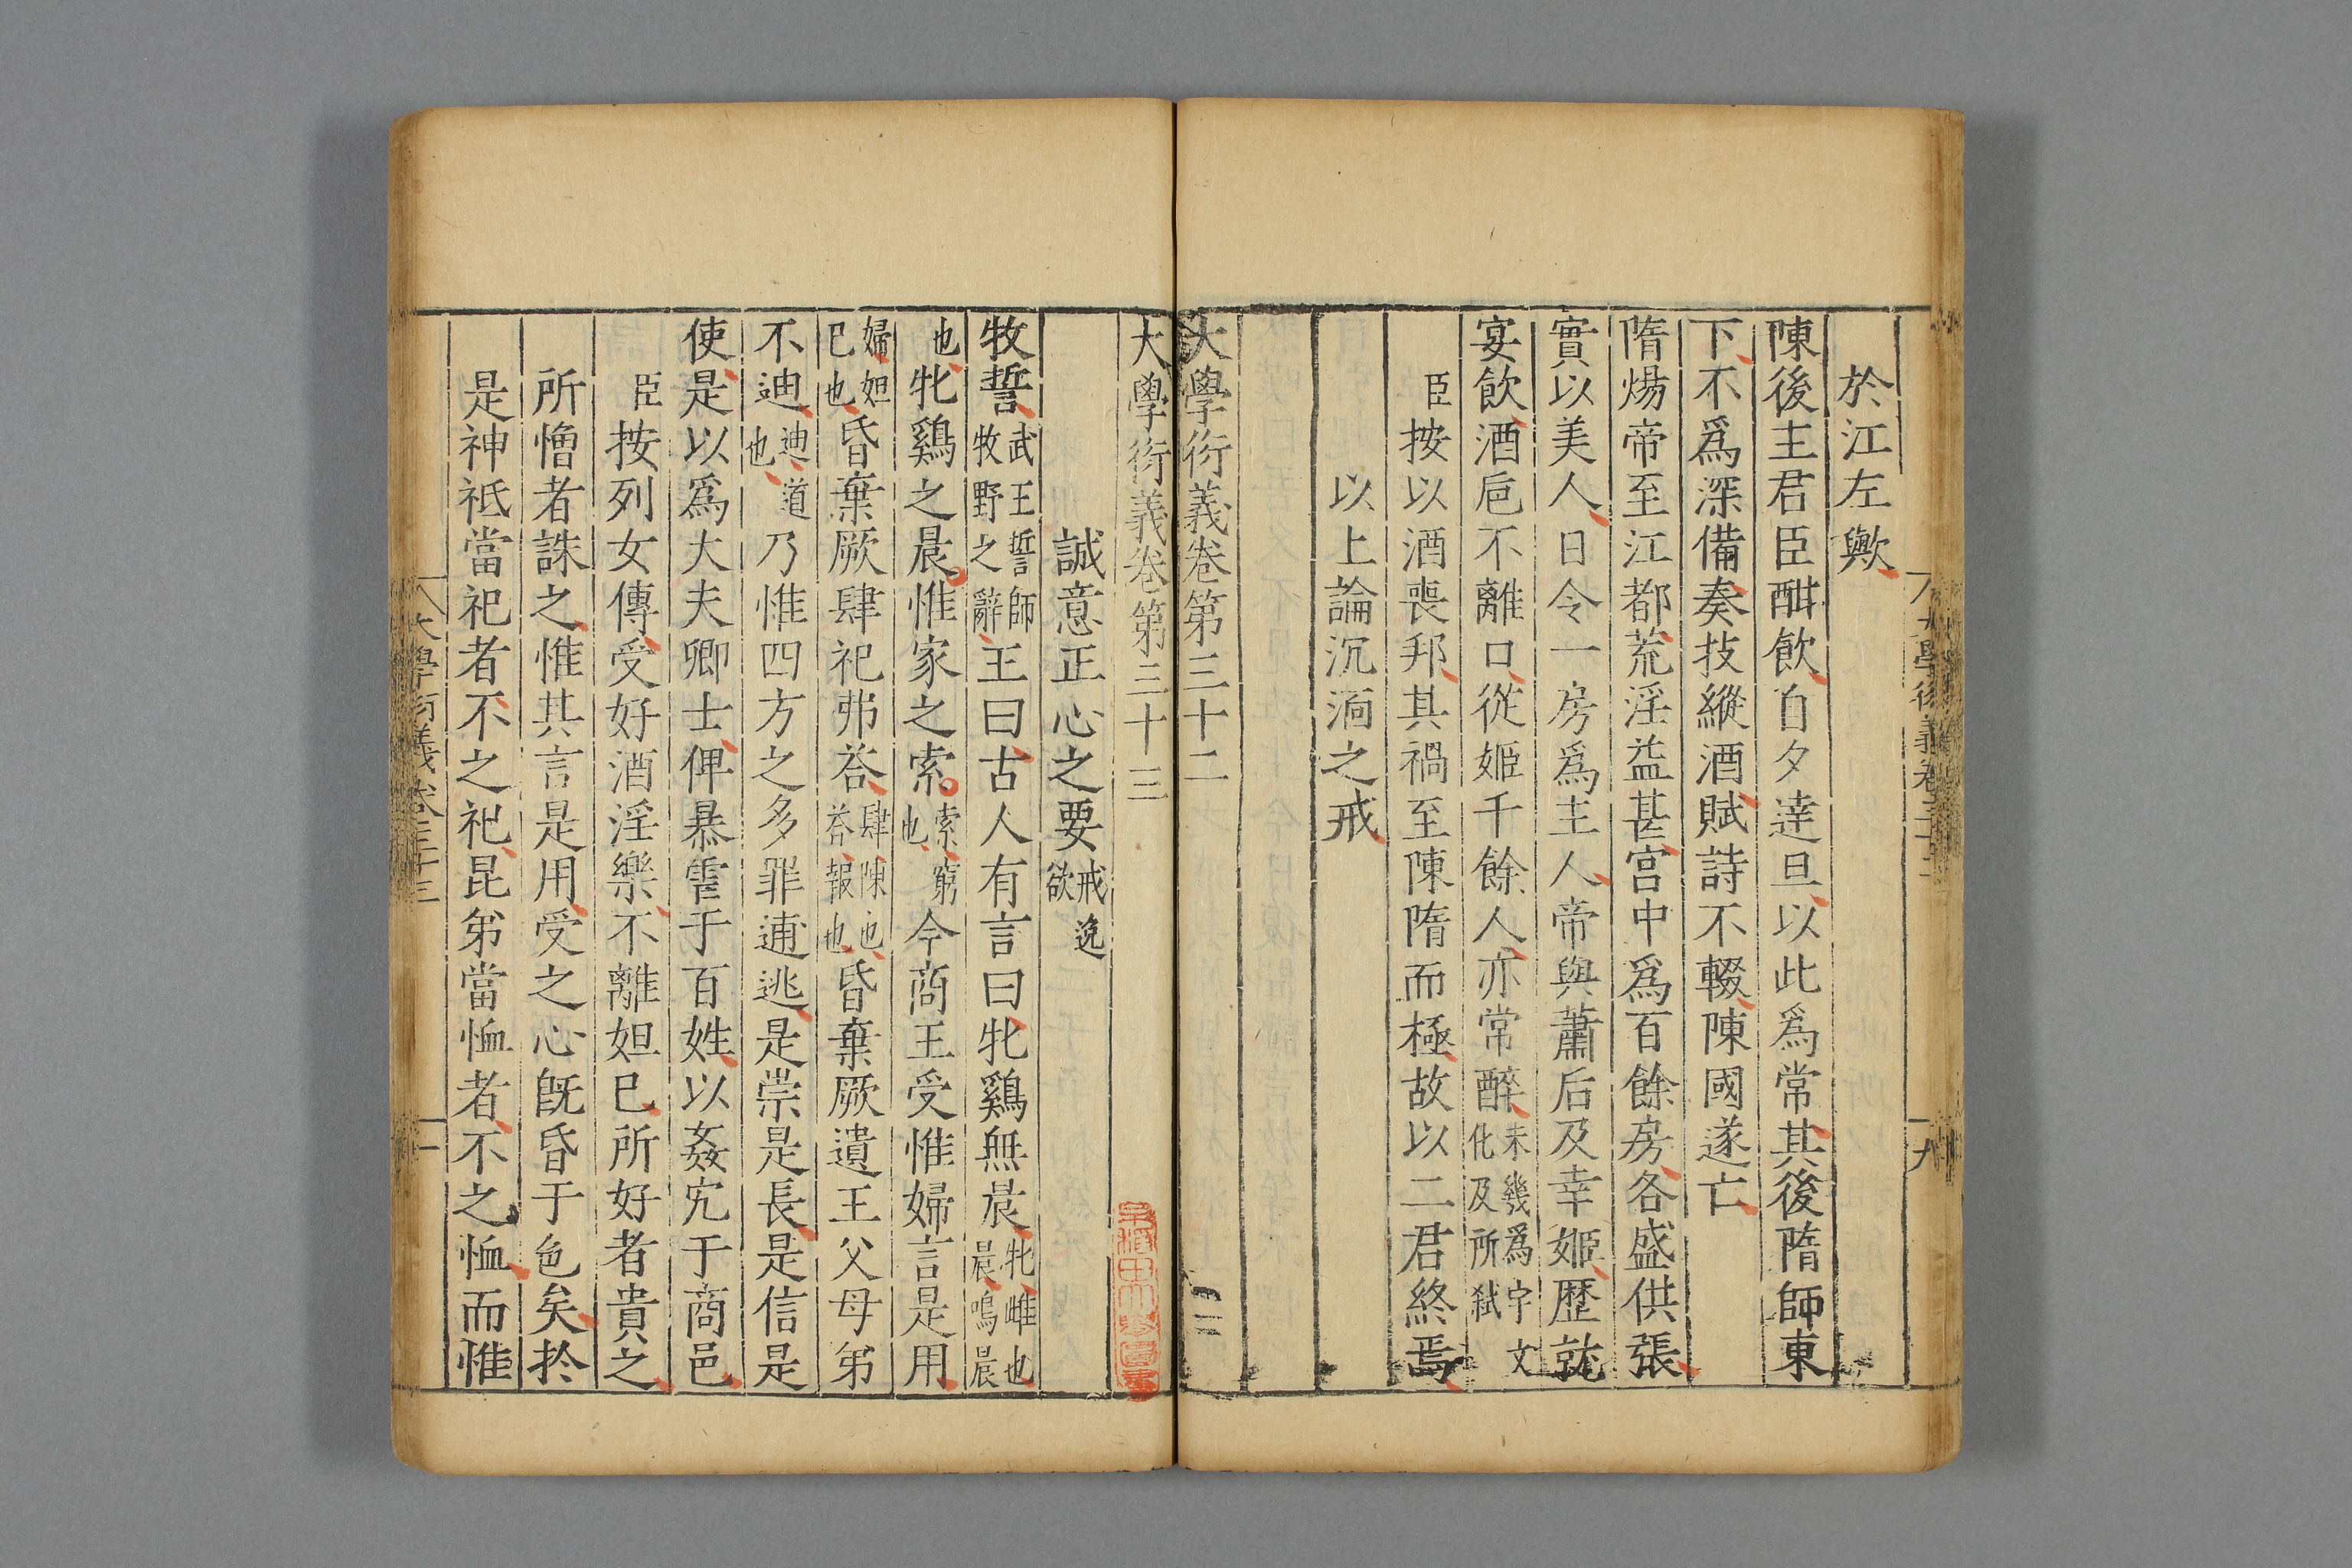 於江左歟
陳後主君臣酣飲自夕達旦以此爲常其後隋師東
下不爲深備奏技縱酒賦詩不輟陳國遂亡
隋煬帝至江都荒淫益甚宮中爲百餘房各盛供張
實以美人日令一房爲主人帝與蕭后及幸姬歷就
宴飲酒巵不離口從姬千餘人亦常醉未幾爲宇文化及所弑
臣按以酒喪邦其禍至陳隋而極故以二君終焉
以上論沉湎之戒
大學衍義卷第三十二
大學衍義卷第三十三
誠意正心之要戒逸欲
牧誓武王誓師牧野之辭王曰古人有言曰牝鷄無晨牝雌也晨鳴晨
也牝鷄之晨惟家之索索窮也今商王受惟婦言是用
婦妲巳也昏棄厥肆祀弗荅肆陳也荅報也昏棄厥遺王父母弟
不迪迪道也乃惟四方之多罪逋逃是崇是長是信是
使是以爲大夫卿士俾暴虐于百姓以姦宄于商邑
臣按列女傳受好酒淫樂不離妲巳所好者貴之
所憎者誅之惟其言是用受之心旣昏于色矣於
是神祗當祀者不之祀昆弟當恤者不之恤而惟
大學衍義卷三十三
一